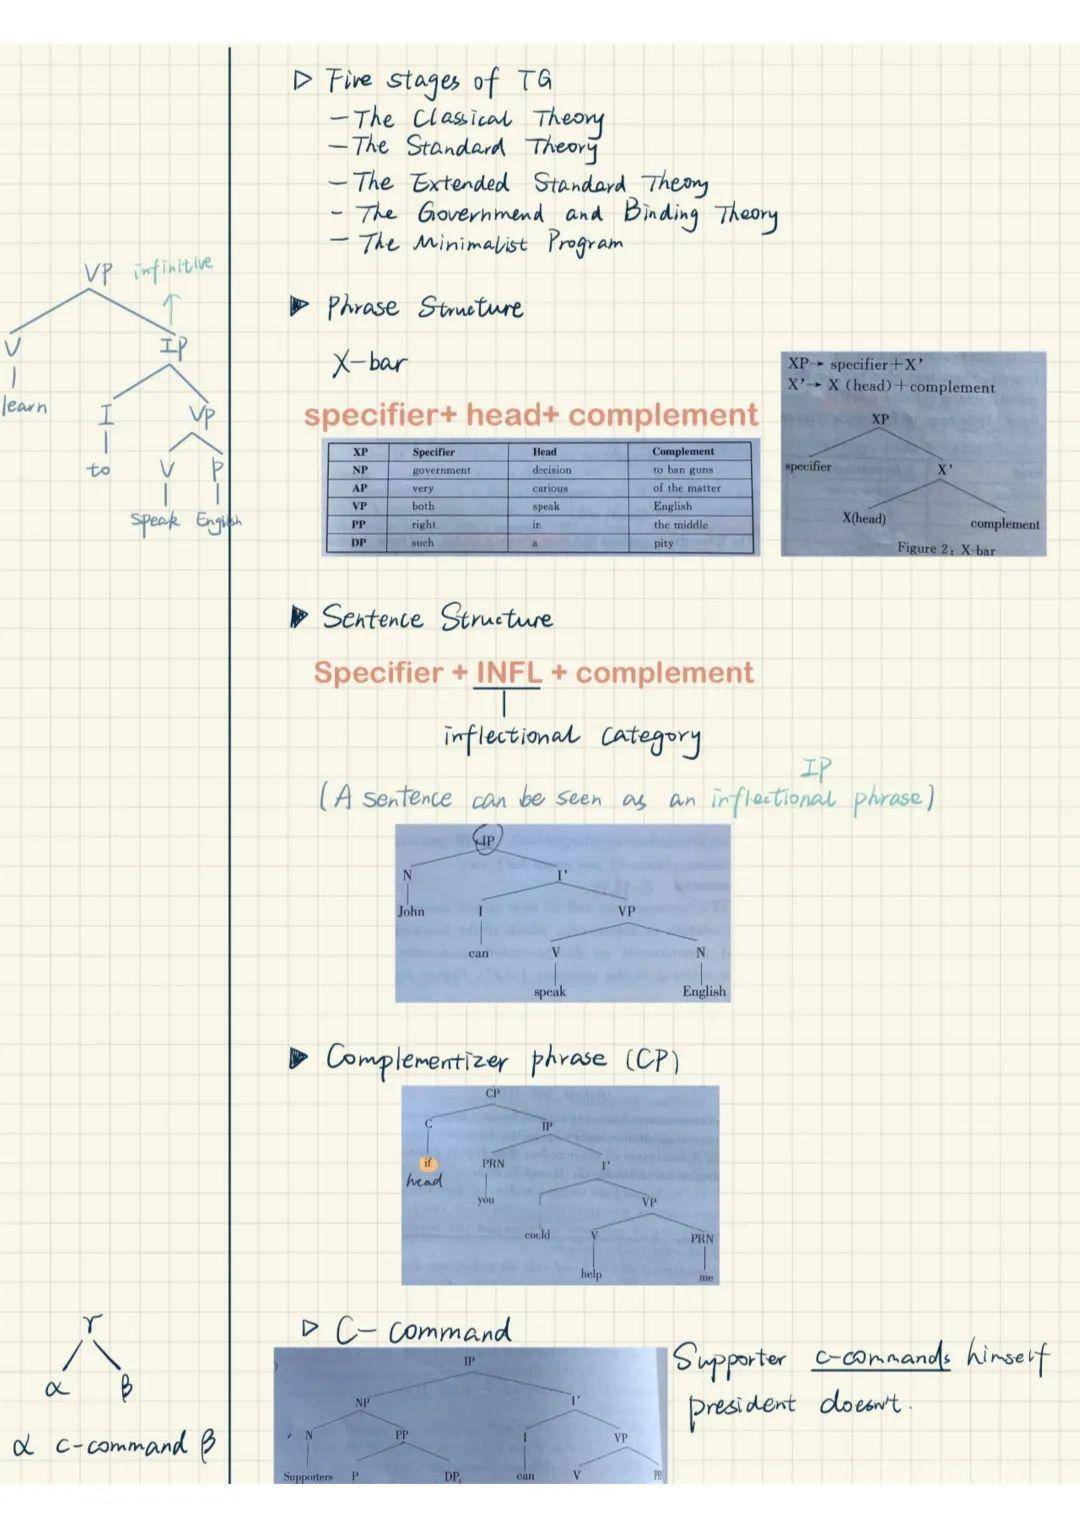 ▷ Five stages of TG
- The Classical Theory
- The Standard Theory
- The Extended Standard Theory
- The Governmend and Binding Theory
- The Minimalist Program
VP infinitive
↑
V IP
learn I VP
to V P
speak English
▶ Phrase Structure
X-bar
specifier+ head+ complement
XP Specifier Head Complement
NP government decision to ban guns
AP very curious of the matter
VP both speak English
PP right in the middle
DP such a pity
XP → specifier+X'
X' → X (head)+complement
XP
specifier X'
X(head) complement
Figure 2: X-bar
▶ Sentence Structure
Specifier + INFL + complement
inflectional category
IP
(A sentence can be seen as an inflectional phrase)
IP
N I'
John I VP
can V N
speak English
▶ Complementizer phrase (CP)
CP
C IP
if PRN I'
head
you I VP
could V PRN
help me
▷ C-command
r
α β
α c-command β
IP
NP I'
N PP I VP
Supporters P DP can V
Supporter c-commands himself
president doesn't.